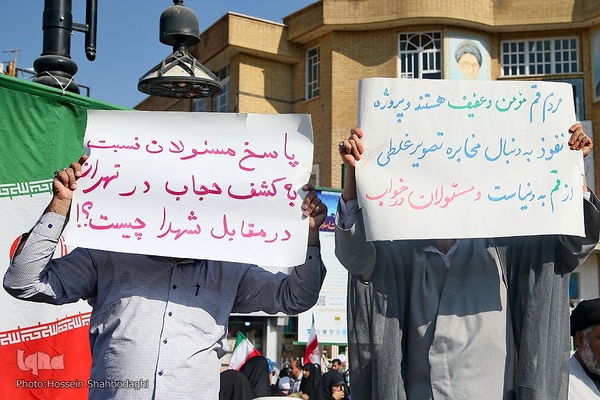 پاسخ مسئولان نسبت
به کشف حجاب در تهران
در مقابل شهدا چیست؟!!
مردم قم مؤمن و عفیف هستند و پروژه
نفوذ به دنبال مخابره تصویر غلطی
از قم به دنیاست و مسئولان در خواب
iqna
Photo:Hossein Shahbodaghi